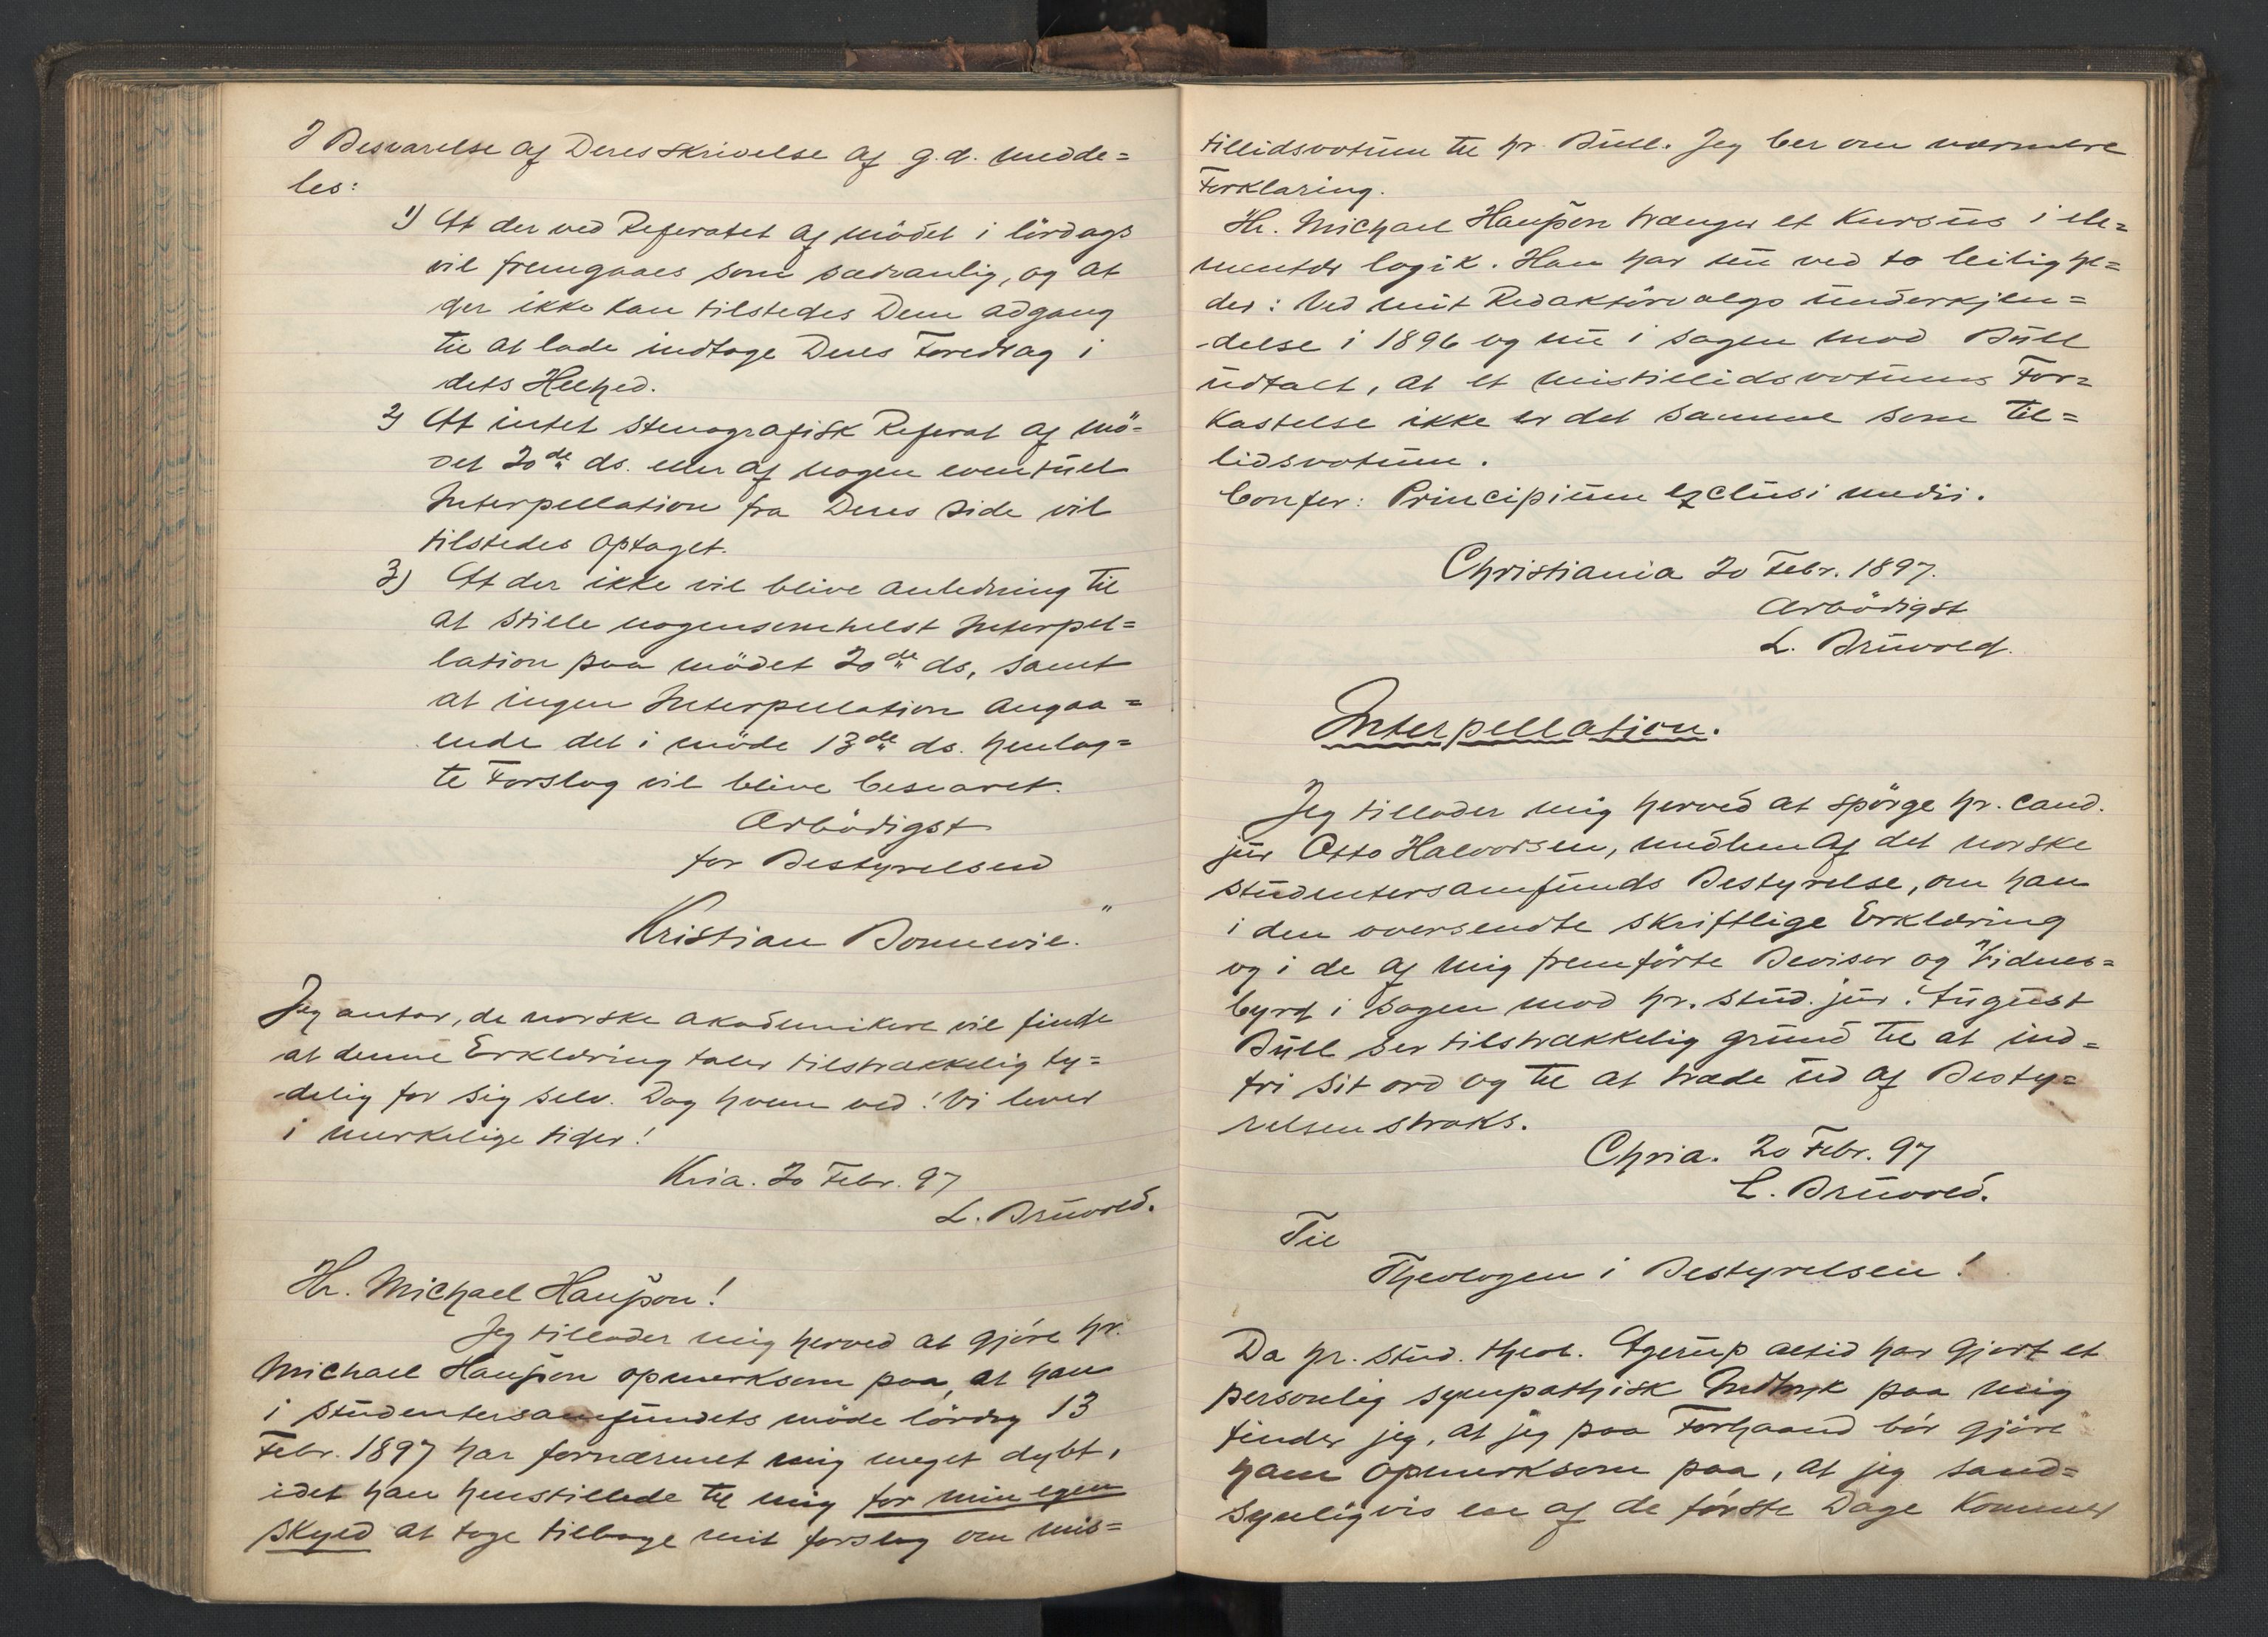 I Besvarelse af Deres Skrivelse af g. d. medde=
les:
1) At der ved Referatet af mödet i lördags
vil fremgaaes som sædvanlig, og at
der ikke kan tilstedes Dem adgang
til at lade indtage Deres Foredrag i
dets Helhed.
2) At intet stenografisk Referat af mö=
det 20de ds. eller af nogen eventuel
Interpellation fra Deres Side vil
tilstedes optaget.
3) At der ikke vil blive anledning til
at stille nogensomhelst Interpel=
lation paa mödet 20de ds, samt
at ingen Interpellation angaa=
ende det i möde 13de ds. henlag=
te Forslag vil blive besvaret.
Ærbödigst
for Bestyrelsen
Kristian Bonnevie."
Jeg antar, de norske akademikere vil finde
at denne Erklæring taler tilstrækkelig ty=
delig for sig selv. Dog hvem ved! Vi lever
i merkelige tider!
Kria. 20 Febr. 97
L. Bruvold.
Hr. Michael Hansson!
Jeg tillader mig herved at gjöre hr.
Michael Hansson opmerksom paa, at han
i studentersamfundets möde lördag 13
Febr. 1897 har fornærmet mig meget dybt,
idet han henstillede til mig for min egen
Skyld at tage tilbage mit forslag om mis=
tillidsvotum til hr. Bull. Jeg ber om nærmere
Forklaring.
Hr. Michael Hansson trænger et Kursus i ele=
mentær logik. Han har nu ved to leilighe=
der: Ved mit Redaktörvalgs underkjen=
delse i 1896 og nu i sagen mod Bull
udtalt, at et mistillidsvotums For=
kastelse ikke er det samme som Til=
lidsvotum.
Confer: Principium exclusi medii.
Christiania 20 Febr. 1897.
Ærbödigst
L. Bruvold.
Interpellation.
Jeg tillader mig herved at spörge hr. cand.
jur Otto Halvorsen, medlem af det norske
studentersamfunds Bestyrelse, om han
i den oversendte skriftlige Erklæring
og i de af mig fremförte Beviser og Vidnes=
byrd i sagen mod hr. stud. jur. August
Bull ser tilstrækkelig grund til at ind=
fri sit ord og til at træde ud af Besty=
relsen straks.
Chria. 20 Febr. 97
L. Bruvold.
Til
Theologen i Bestyrelsen!
Da hr. stud. theol. Agerup altid har gjort et
personlig sympathisk Indtryk paa mig
finder jeg, at jeg paa Forhaand bör gjöre
ham opmerksom paa, at jeg sand=
synligvis en af de förste Dage kommer